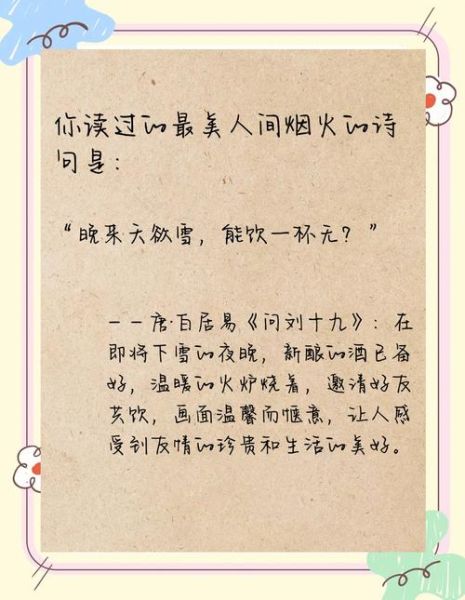 你读过的最美人间烟火的诗
句是：
“晚来天欲雪，能饮一杯无？”
——唐·白居易《问刘十九》：在
即将下雪的夜晚，新酿的酒已备
好，温暖的火炉烧着，邀请好友
共饮，画面温馨而惬意，让人感
受到友情的珍贵和生活的美好。